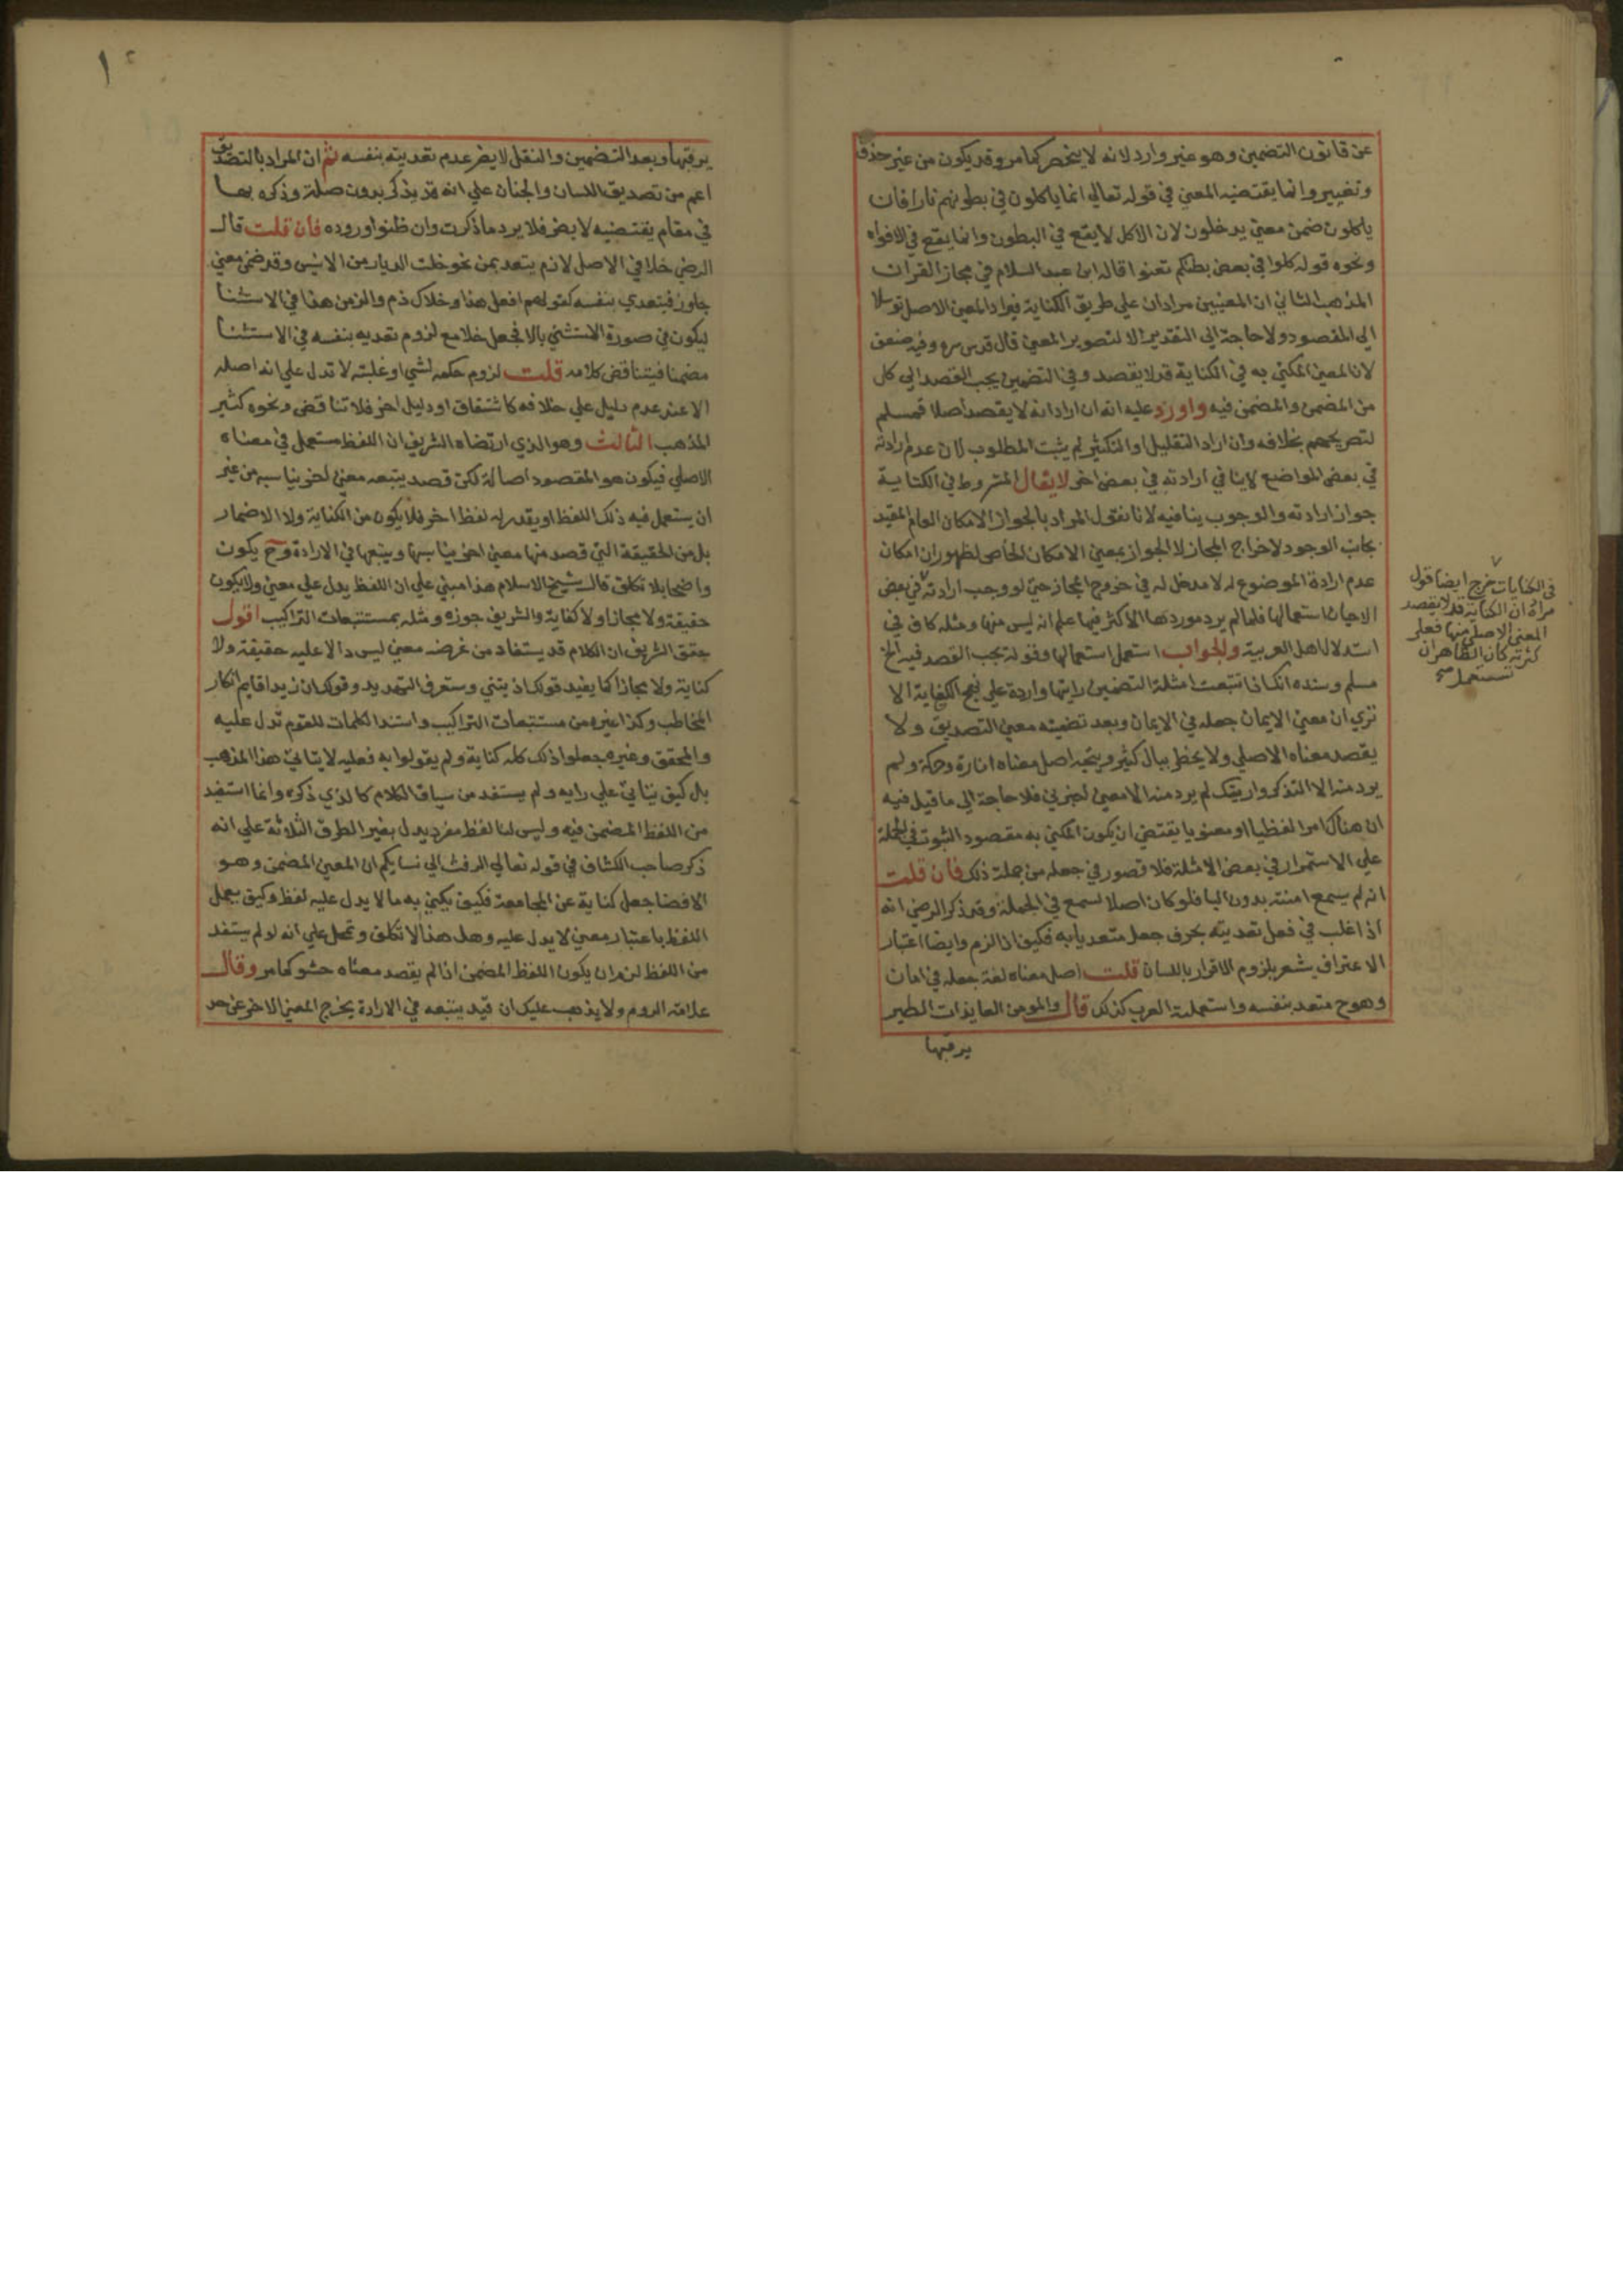 عن قانون التضمين وهو غير وارد لانه لا ينحصر كما مر وقد يكون من غير حذف
وتغيير وانما يقتضيه المعني في قوله تعالي انما ياكلون في بطونهم نارا فان
ياكلون ضمن معني يدخلون لان الاكل لا يقع في البطون وانما يقع في الافواه
ونحوه قوله كلوا في بعض بطنكم تعفوا قاله ابن عبد السلام في مجاز القران
المذهب الثاني ان المعنيين مرادان علي طريق الكناية فيراد المعني الاصل توسلا
الي المقصود ولا حاجة الي التقدير الا لتصوير المعني قال قدس سره وفيه ضعف
لان المعني المكني به في الكناية قد لا يقصد وفي التضمين يجب القصد الي كل
من المضمن والمضمن فيه واورد عليه انه ان اراد انه لا يقصد اصلا فمسلم
لتصريحهم بخلافه وان اراد التقليل او التكثير لم يثبت المطلوب لان عدم ارادته
في بعض المواضع لا ينافي ارادته في بعض اخر لا يقال المشروط في الكناية
جواز ارادته والوجوب ينافيه لانا نقول المراد بالجواز الامكان العام المقيد
بجانب الوجود لاخراج المجاز لا الجواز بمعني الامكان الخاص لظهور ان امكان
عدم ارادة الموضوع له لا مدخل له في خروج المجاز حتي لو وجب ارادته في بعض
الاحيان استعمالها فلما لم يرد موردها الاكثر فيها علم انه ليس منها ومثله كاف في
استدلال اهل العربية والجواب استعمل استعمالها وقوله يجب القصد فيه الخ
مسلم وسنده انك اذا تتبعت امثلة التضمين رايتها واردة علي نهج الكناية الا
تري ان معني الايمان جعله في الامان وبعد تضمينه معني التصديق ولا
يقصد معناه الاصلي ولا يخطر ببال كثير و اصل معناه اثارة وحركة ولم
يرد منه الا التذكر واريتك لم يرد منه الا معني اخبرني فلا حاجة الي ما قيل فيه
ان هناك امرا لفظيا او معنويا يقتضي ان يكون المكني به مقصود الثبوت في الجملة
علي الاستمرار في بعض الامثلة فلا قصور في جعله من جملة ذلك فان قلت
انه لم يسمع امنته بدون البا فلو كان اصلا لسمع في الجملة وقد ذكر الرضي انه
اذا غلب في فعل تعديته بحرف جعل متعديا به فكيف اذا لزم وايضا اعتبار
الاعتراف يشعر بلزوم الاقرار باللسان قلت اصل معناه لغة جعله في امان
وهو ح متعد بنفسه واستعملته العرب كذلك قال والمومن العايذات الطير
يرقبها
في الكنايات خرج ايضا قول
مراه ان الكناية قد لا يقصد
المعني الاصلي منها فعلم
كثرته كان الظاهر ان
تستعمل صح
١٢
يرقبها وبعد التضمين والنقل لا يضر عدم تعديته بنفسه ثم ان المراد بالتصديق
اعم من تصديق اللسان والجنان علي انه قد يذكر بدون صلة وذكره بها
في مقام يقتضيه لا يضر فلا يرد ما ذكرت وان ظنوا وروده فان قلت قال
الرضي خلا في الاصل لازم يتعد بمن نحو خلت الديار من الانيس وقد ضمن معني
جاوز فيتعدي بنفسه كقولهم افعل هذا وخلاك ذم والزمن هذا في الاستثنا
ليكون في صورة المستثني بالا فجعل خلا مع لزوم تعديه بنفسه في الاستثنا
مضمنا فيتناقض كلامه قلت لزوم حكم لشي او غلبته لا تدل علي انه اصله
الا عند عدم دليل علي خلافه كاشتقاق او دليل اخر فلا تناقض ونحوه كثير
المذهب الثالث وهو الذي ارتضاه الشريف ان اللفظ مستعمل في معناه
الاصلي فيكون هو المقصود اصالة لكن قصد يتبعه معني اخر يناسبه من غير
ان يستعمل فيه ذلك اللفظ او يقدر له لفظ اخر فلا يكون من الكناية ولا الاضمار
بل من الحقيقة التي قصد منها معني اخر يناسبها ويتبعها في الارادة وح يكون
واضحا بلا تكلف قال شيخ الاسلام هذا مبني علي ان اللفظ يدل علي معني ولا يكون
حقيقة ولا مجازا ولا كناية والشريف جوزه ومثله بمستتبعات التراكيب اقول
حقق الشريف ان الكلام قد يستفاد من عرضه معني ليس دالا عليه حقيقة ولا
كناية ولا مجازا كما يفيد قولك اذيتني وستعرف التهديد وقولك ان زيدا قايم انكار
المخاطب وكذا غيره من مستتبعات التراكيب واستند الكلمات للقوم تدل عليه
والمحقق وغيره جعلوا ذلك كله كناية ولم يقولوا به فعليه لا يتاتي هذا المذهب
بل كيف يتاتي علي رايه ولم يستفد من سياق الكلام كالذي ذكره وانما استفيد
من اللفظ المضمن فيه وليس لنا لفظ مفرد يدل بغير الطرق الثلاثة علي انه
ذكر صاحب الكشاف في قوله تعالي الرفث الي نسايكم ان المعني المضمن وهو
الافضا جعل كناية عن المجامعة فكيف يكني به ما لا يدل عليه لفظ وكيف يعمل
اللفظ باعتبار معني لا يدل عليه وهل هذا الا تكلف وتمحل علي انه لو لم يستفد
من اللفظ لزم ان يكون اللفظ المضمن اذا لم يقصد معناه حشو كما مر وقال
علامة الروم ولا يذهب عليك ان قيد يتبعه في الارادة يخرج المعني الاخر عن حد